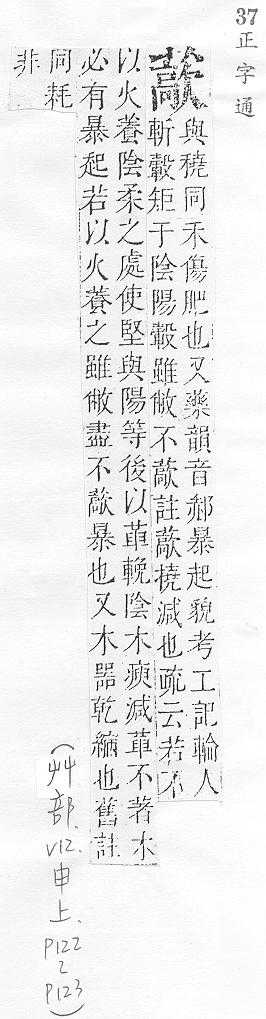 37
正字通
藃
與穘同禾傷肥也又藥韻音郝暴起貌考工記輪人
斬轂矩于陰陽轂雖敝不藃註藃橈減也疏云若不
以火養陰柔之處使堅與陽等後以革鞔陰木瘐減革不著木
必有暴起若以火養之雖敝盡不藃暴也又木器乾縮也舊註
同耗
非
(艸部.
V12.
申上.
P122
P123)